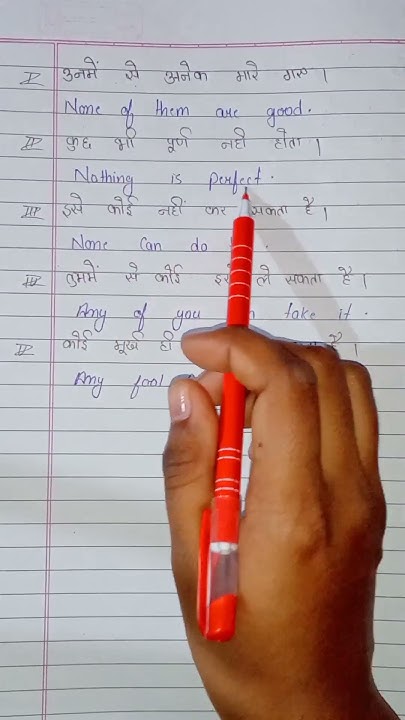 I उनमें से अनेक मारे गए।
None of them are good.
II कुछ भी पूर्ण नहीं होता।
Nothing is perfect.
III इसे कोई नहीं कर सकता है।
None can do
IIII तुममें से कोई इसे ले सकता है।
Any of you take it.
V कोई मूर्ख ही है।
Any fool